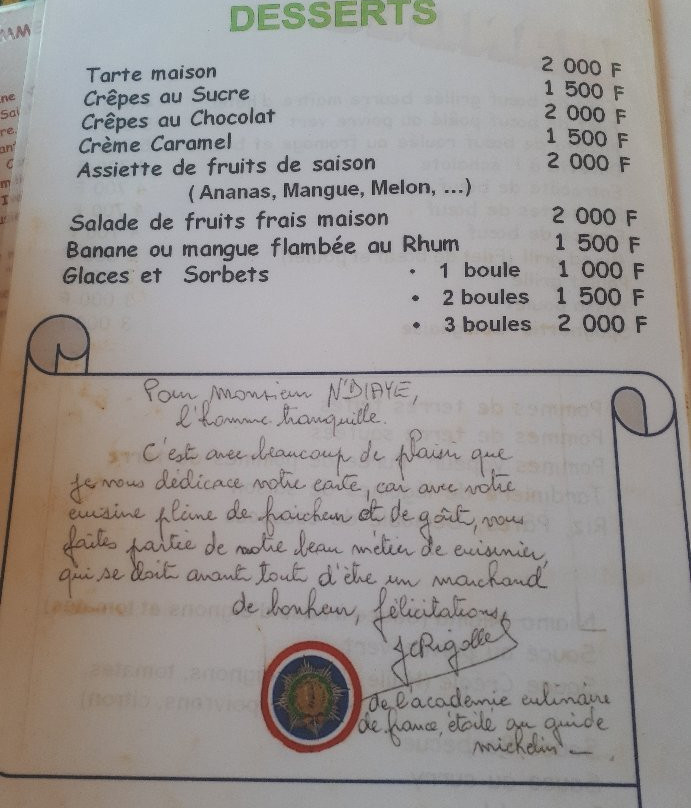 DESSERTS
Tarte maison 2 000 F
Crêpes au Sucre 1 500 F
Crêpes au Chocolat 2 000 F
Crème Caramel 1 500 F
Assiette de fruits de saison 2 000 F
( Ananas, Mangue, Melon, ...)
Salade de fruits frais maison 2 000 F
Banane ou mangue flambée au Rhum 1 500 F
Glaces et Sorbets • 1 boule 1 000 F
• 2 boules 1 500 F
• 3 boules 2 000 F
Pour Monsieur N'DIAYE,
l'homme tranquille.
C'est avec beaucoup de plaisir que
je vous dédicace votre carte, car avec votre
cuisine pleine de fraicheur et de goût, vous
faites partie de notre beau métier de cuisinier,
qui se doit avant tout d'être un marchand
de bonheur, félicitations,
JCRigollet
de l'academie culinaire
de france, étoile au guide
michelin